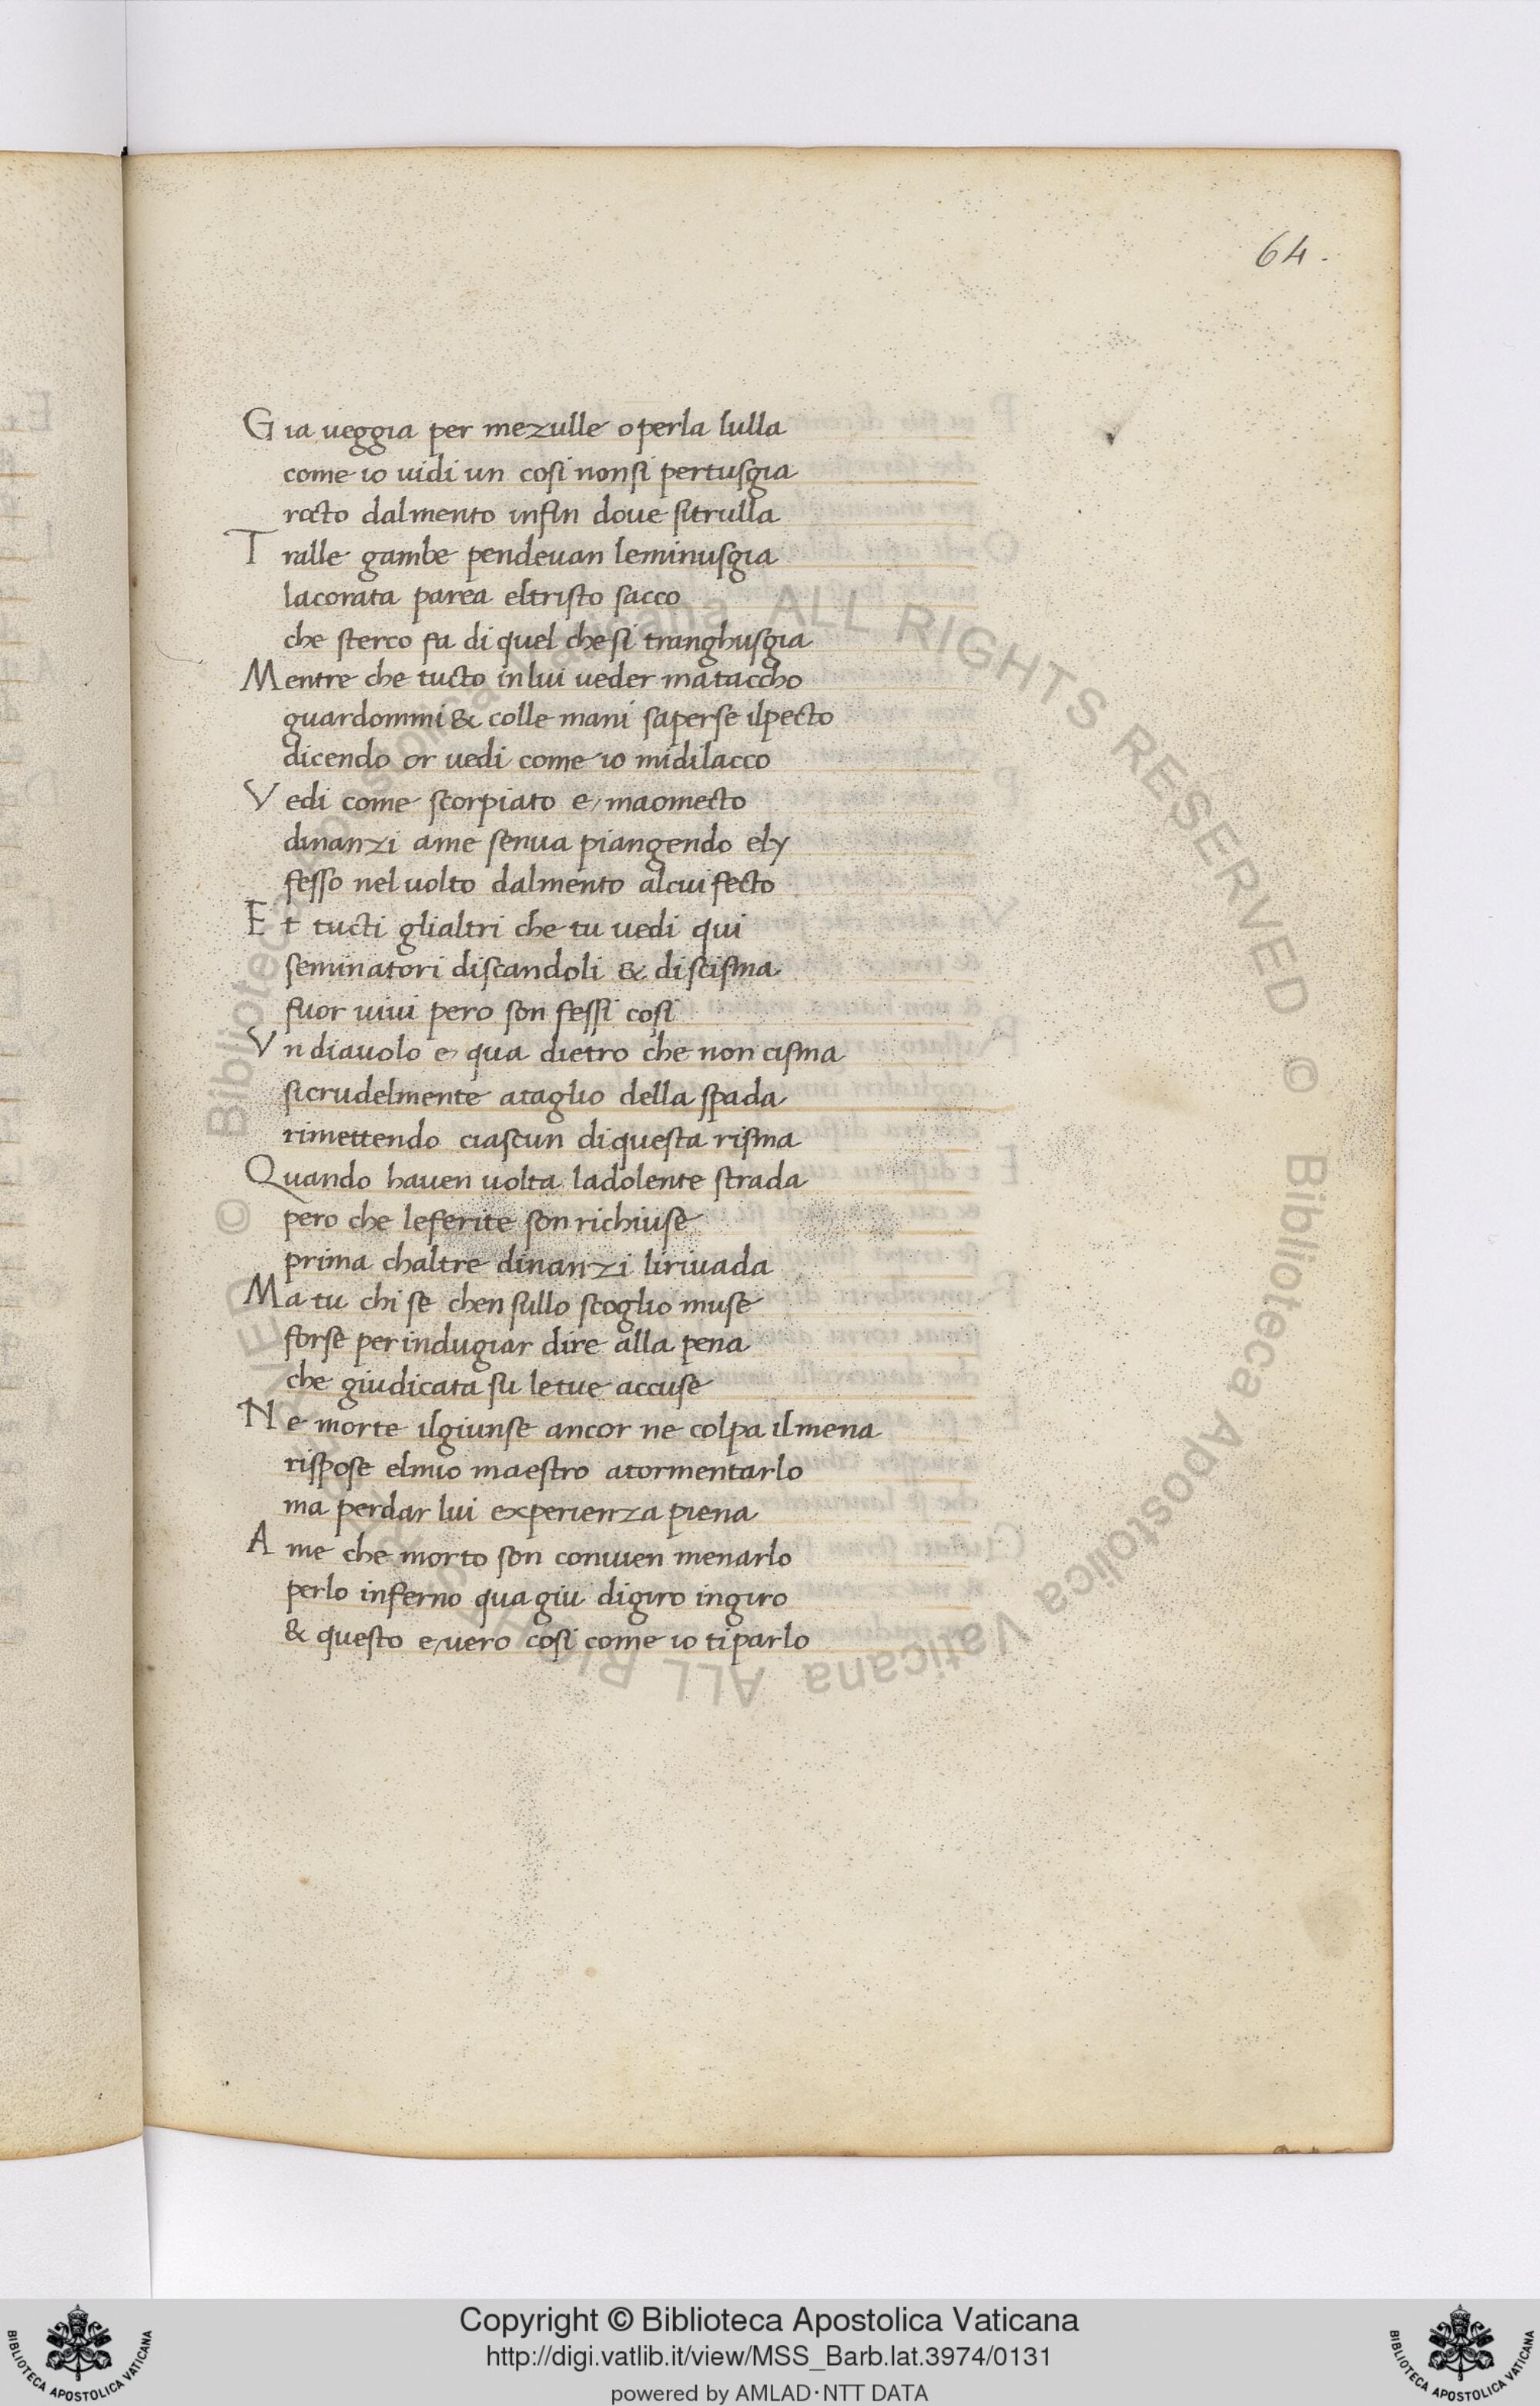 64.
Gia ueggia per mezulle o perla lulla
come io uidi un cosi nonsi pertusgia
rocto dalmento infin doue sitrulla
Tralle gambe pendeuan leminusgia
lacorata parea eltristo sacco
che sterco fa di quel chesi tranghusgia
Mentre che tucto inlui ueder mataccho
guardommi & colle mani saperse ilpecto
dicendo or uedi come io midilacco
Vedi come scorpiato e maomecto
dinanzi ame senua piangendo ely
fesso nel uolto dalmento alcuifecto
Et tucti glialtri che tu uedi qui
seminatori discandoli & discisma
fuor uiui pero son fessi cosi
Vn diauolo e qua dietro che non cisma
sicrudelmente ataglio della spada
rimettendo ciascun diquesta risma
Quando hauen uolta ladolente strada
pero che leferite son richiuse
prima chaltre dinanzi liriuada
Ma tu chi se chen sullo scoglio muse
forse per indugiar dire alla pena
che giudicata su letue accuse
Ne morte ilgiunse ancor ne colpa ilmena
rispose elmio maestro atormentarlo
ma perdar lui experienza piena
A me che morto son conuien menarlo
perlo inferno qua giu digiro ingiro
& questo e uero cosi come io tiparlo
Copyright © Biblioteca Apostolica Vaticana
http://digi.vatlib.it/view/MSS_Barb.lat.3974/0131
powered by AMLAD·NTT DATA
BIBLIOTECA APOSTOLICA VATICANA
BIBLIOTECA APOSTOLICA VATICANA
© Biblioteca Apostolica Vaticana ALL RIGHTS RESERVED © Biblioteca Apostolica Vaticana ALL RIGHTS RESERVED